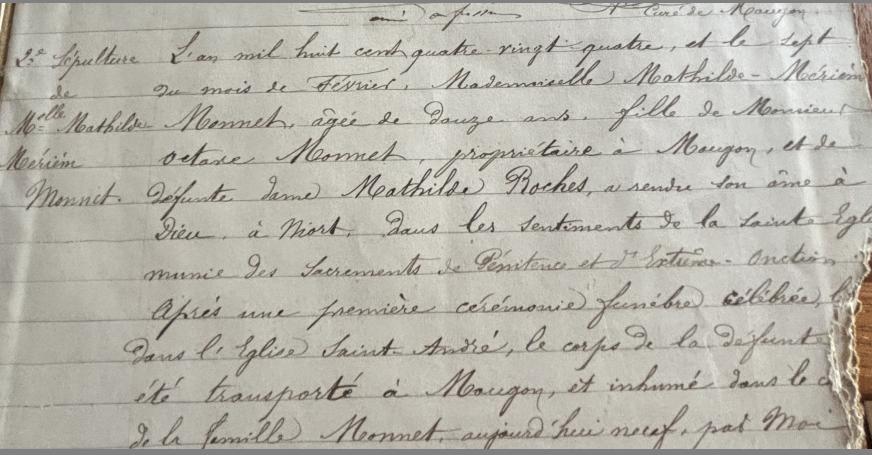 Curé de Mougon
2e Sépulture L'an mil huit cent quatre-vingt quatre, et le sept
de du mois de Février, Mademoiselle Mathilde-Mériém
Melle Mathilde Monnet, âgée de douze ans, fille de Monsieur
Mériém octave Monnet, propriétaire à Mougon, et de
Monnet. défunte dame Mathilde Roches, a rendu son âme à
Dieu, à Niort, dans les sentiments de la Sainte Egl
munie des Sacrements de Pénitence et d' Extrême-Onction.
Après une première cérémonie funèbre célébrée,
dans l'Eglise Saint-André, le corps de la défunte
été transporté à Mougon, et inhumé dans le c
de la famille Monnet, aujourd'hui neuf, par Moi